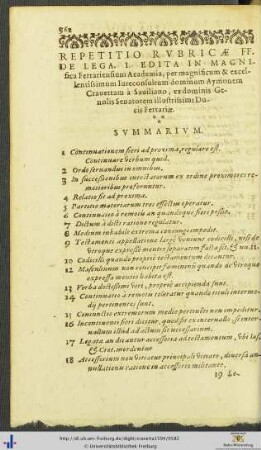 562
REPETITIO RVBRICÆ FF.
DE LEGA. I. EDITA IN MAGNI-
fica Ferrariensium Academia, per magnificum & excel-
lentissimum Iureconsultum dominum Aymonem
Crauettam à Sauiliano, ex dominis Ge-
nolis Senatorem illustrissimi Du-
cis Ferrariæ.
SVMMARIVM.
1 Continuationem fieri ad proxima, regulare est.
Continuare verbum quid.
2 Ordo seruandus in omnibus.
3 In successionibus coarctatarum ex ordine proximiores re-
motioribus præferuntur.
4 Relatio fit ad proxima.
5 Partitio materiarum tres effectus operatur.
6 Continuatio à remotis an quandoque fieri possit.
7 Dictum à districtione regulatur.
8 Medium inhabile extrema coniungi impedit.
9 Testamenti appellatione largè veniunt codicilli, nisi de
vtroque expressè mentio separatim facta sit, &
10 Codicilli quando propriè testamentum dicantur.
12 Masculinum non concipit fœmininum quando de vtroque
expressa mentio habita est.
13 Verba dictissimi viri, propriè accipienda sunt.
14 Continuatio à remotis toleratur quando tituli interme-
dij pertinentes sunt.
15 Coniunctio extremorum medio pertinenti non impeditur.
16 Incontinenti fieri dicitur, quod ex interuallo, si inter-
uallum illud ad actum sit necessarium.
17 Legata an dicantur accessoria ad testamentum, vbi Ias.
& Crat. mordentur
18 Accessorium non vitiatur principali vitiato, diuersa an-
nullationis ratione in accessorio militante.
19 Le-
http://dl.ub.uni-freiburg.de/diglit/
© Universitätsbibliothek Freiburg
Baden-Württemberg